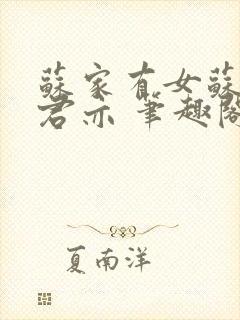 蘇家有女蘇
君亦 筆趣閣
夏南洋